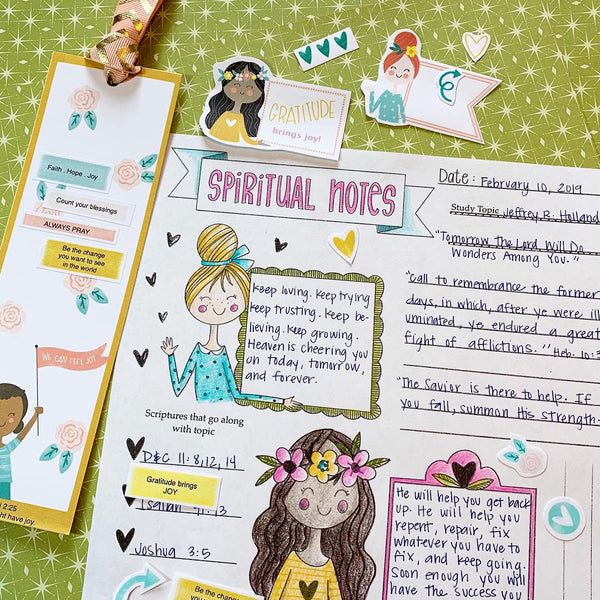 GRATITUDE
brings joy!
Faith . Hope . Joy
Count your blessings
ALWAYS PRAY
Be the change
you want to see
in the world
WE CAN FEEL JOY
2:25
ht have joy.
SPIRITUAL NOTES
Date: February 10, 2019
Study Topic Jeffrey R. Holland
"Tomorrow The Lord Will Do
Wonders Among You."
"Call to remembrance the former
days, in which, after ye were ill
uminated, ye endured a great
fight of afflictions." Heb. 10:3
"The Savior is there to help. If
you fall, summon His strength.
Keep loving. Keep trying
Keep trusting. Keep be-
lieving. Keep growing.
Heaven is cheering you
on today, tomorrow,
and forever.
Scriptures that go along
with topic
D&C 11:8,12,14
Gratitude brings
JOY
Isaiah 41:13
Joshua 3:5
Be the change
you want to see
He will help you get back
up. He will help you
repent, repair, fix
whatever you have to
fix, and keep going.
Soon enough you will
have the success you